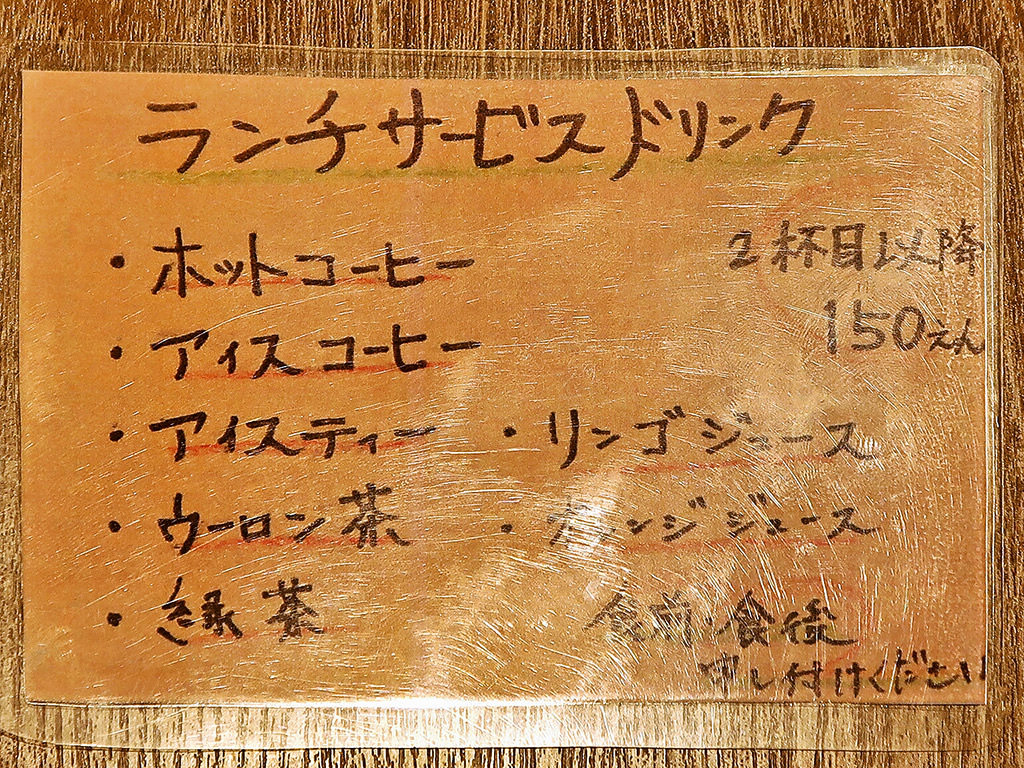 ランチサービスドリンク
・ホットコーヒー
2杯目以降
150えん
・アイスコーヒー
・アイスティー ・リンゴジュース
・ウーロン茶 ・オレンジジュース
・緑茶
食前・食後
申し付けください